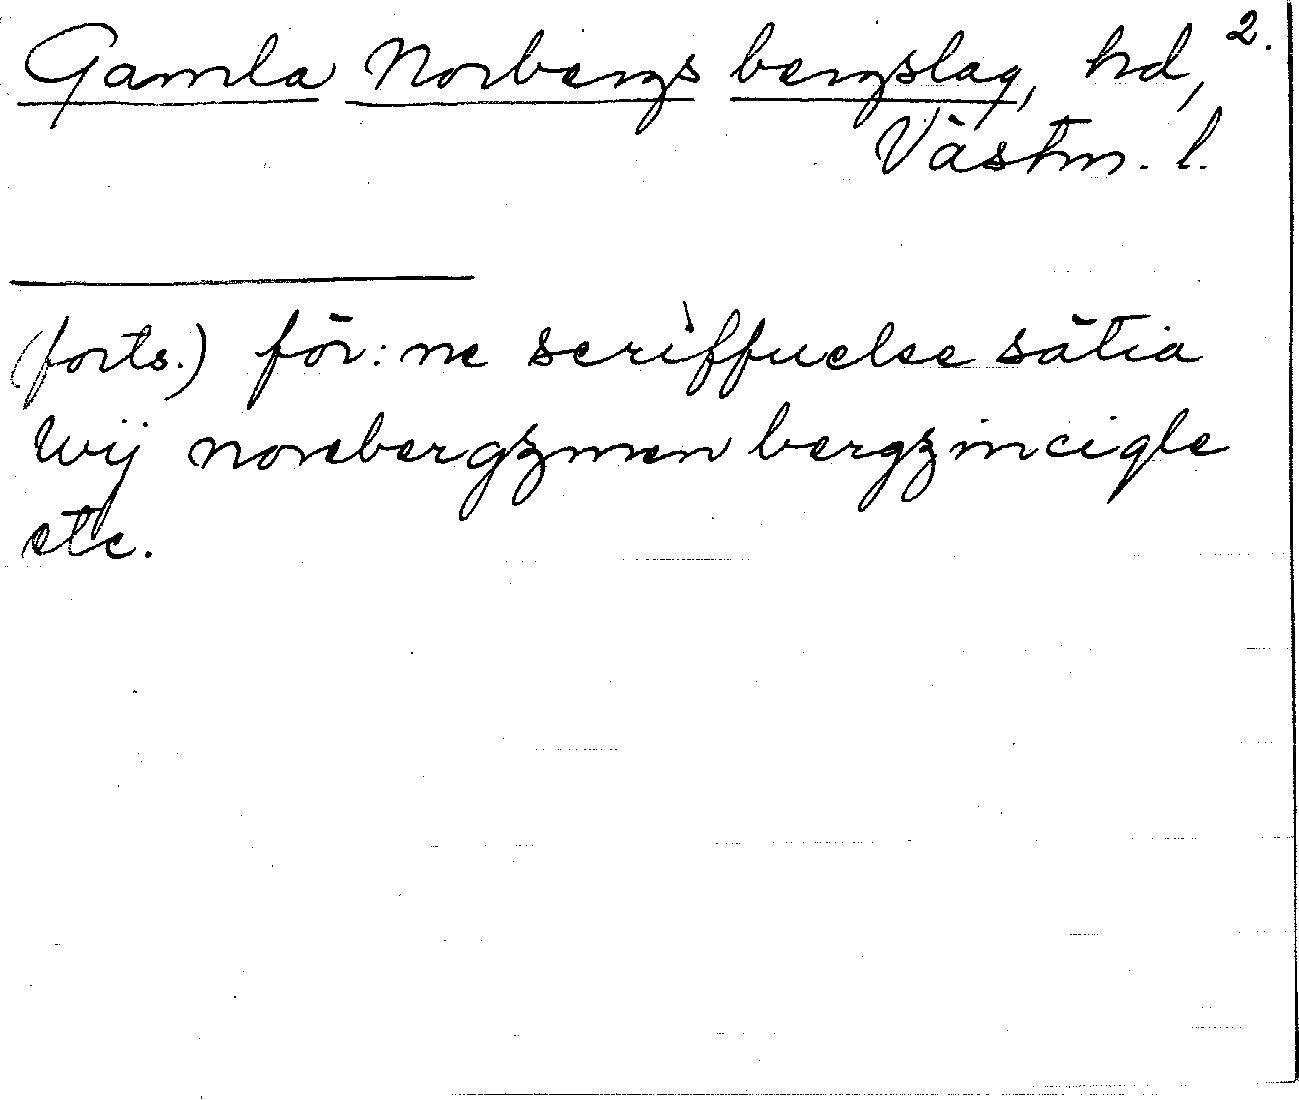 2.
Gamla Norbergs bergslag, hd,
Västm. l.
(forts.) för:ne scriffuelse sätia
wij norebergzmen bergzincigle
etc.